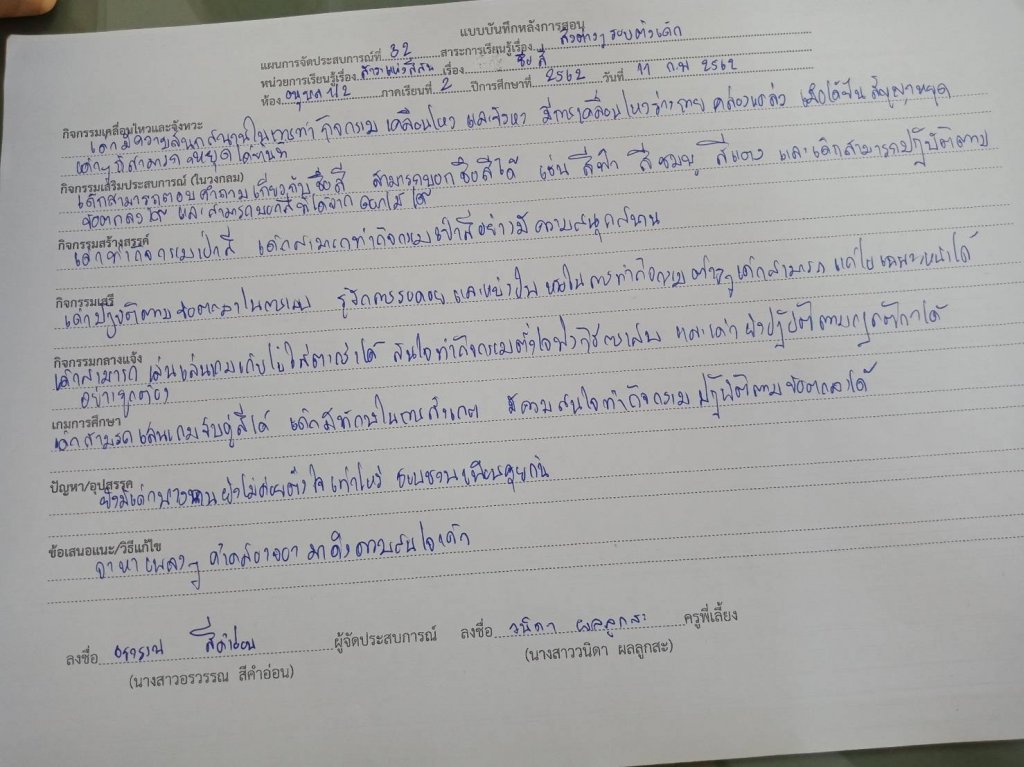 แบบบันทึกหลังการสอน
แผนการจัดประสบการณ์ที่ 32 สาระการเรียนรู้เรื่อง สิ่งต่างๆ รอบตัวเด็ก
หน่วยการเรียนรู้เรื่อง สีสัน เรื่อง ชื่อสี
ห้อง อนุบาล 1/2 ภาคเรียนที่ 2 ปีการศึกษาที่ 2562 วันที่ 11 ก.พ 2562
กิจกรรมเคลื่อนไหวและจังหวะ
เด็กมีความสนุกสนานในการทำกิจกรรมเคลื่อนไหว และจังหวะ มีการเคลื่อนไหวร่างกายคล่องแคล่ว เมื่อได้ยินสัญญาณหยุด
เด็กๆ ก็สามารถหยุดได้ทันที
กิจกรรมเสริมประสบการณ์ (ในวงกลม)
เด็กสามารถตอบคำถามเกี่ยวกับชื่อสี สามารถบอกชื่อสีได้ เช่น สีฟ้า สีชมพู สีแดง และเด็กสามารถปฏิบัติตาม
ข้อตกลงได้ และสามารถบอกสีที่ได้จากดอกไม้ได้
กิจกรรมสร้างสรรค์
เด็กทำกิจกรรมเป่าสี เด็กสามารถทำกิจกรรมเป่าสีอย่างมีความสนุกสนาน
กิจกรรมเสรี
เด็กปฏิบัติตามข้อตกลงในการเล่น รู้จักการรอคอย และแบ่งปัน ในการทำกิจกรรมต่างๆ เด็กสามารถแก้ไขเฉพาะหน้าได้
กิจกรรมกลางแจ้ง
เด็กสามารถเล่นเกมเก็บไข่ใส่ตะกร้าได้ สนใจทำกิจกรรมตั้งใจฟังวิธีการเล่น และเด็กยังปฏิบัติตามกฎกติกาได้
อย่างถูกต้อง
เกมการศึกษา
เด็กสามารถเล่นเกมจับคู่สีได้ เด็กมีทักษะในการสังเกต มีความสนใจทำกิจกรรม ปฏิบัติตามข้อตกลงได้
ปัญหา/อุปสรรค
ยังมีเด็กบางคนยังไม่ค่อยตั้งใจเท่าไหร่ ชอบชวนเพื่อนคุยกัน
ข้อเสนอแนะ/วิธีแก้ไข
หาเพลงๆ คำคล้องจอง มาดึงความสนใจเด็ก
ลงชื่อ อรวรรณ สีคำอ่อน ผู้จัดประสบการณ์ ลงชื่อ วนิดา ผลลูกสะ ครูพี่เลี้ยง
(นางสาวอรวรรณ สีคำอ่อน) (นางสาววนิดา ผลลูกสะ)